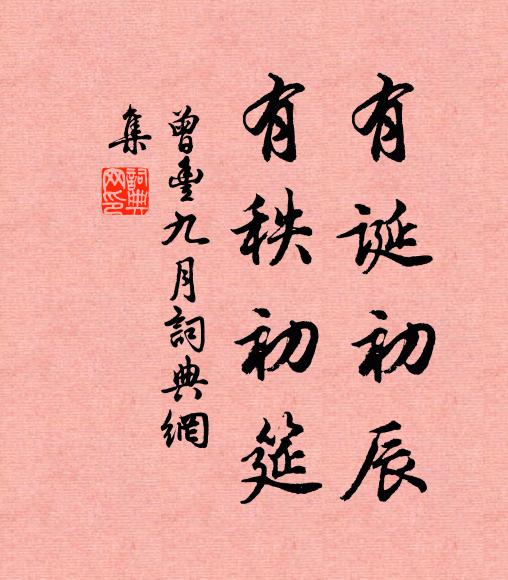 有诞初辰
有秩初筵
曾豐九月詞典網
集
詞典
网印